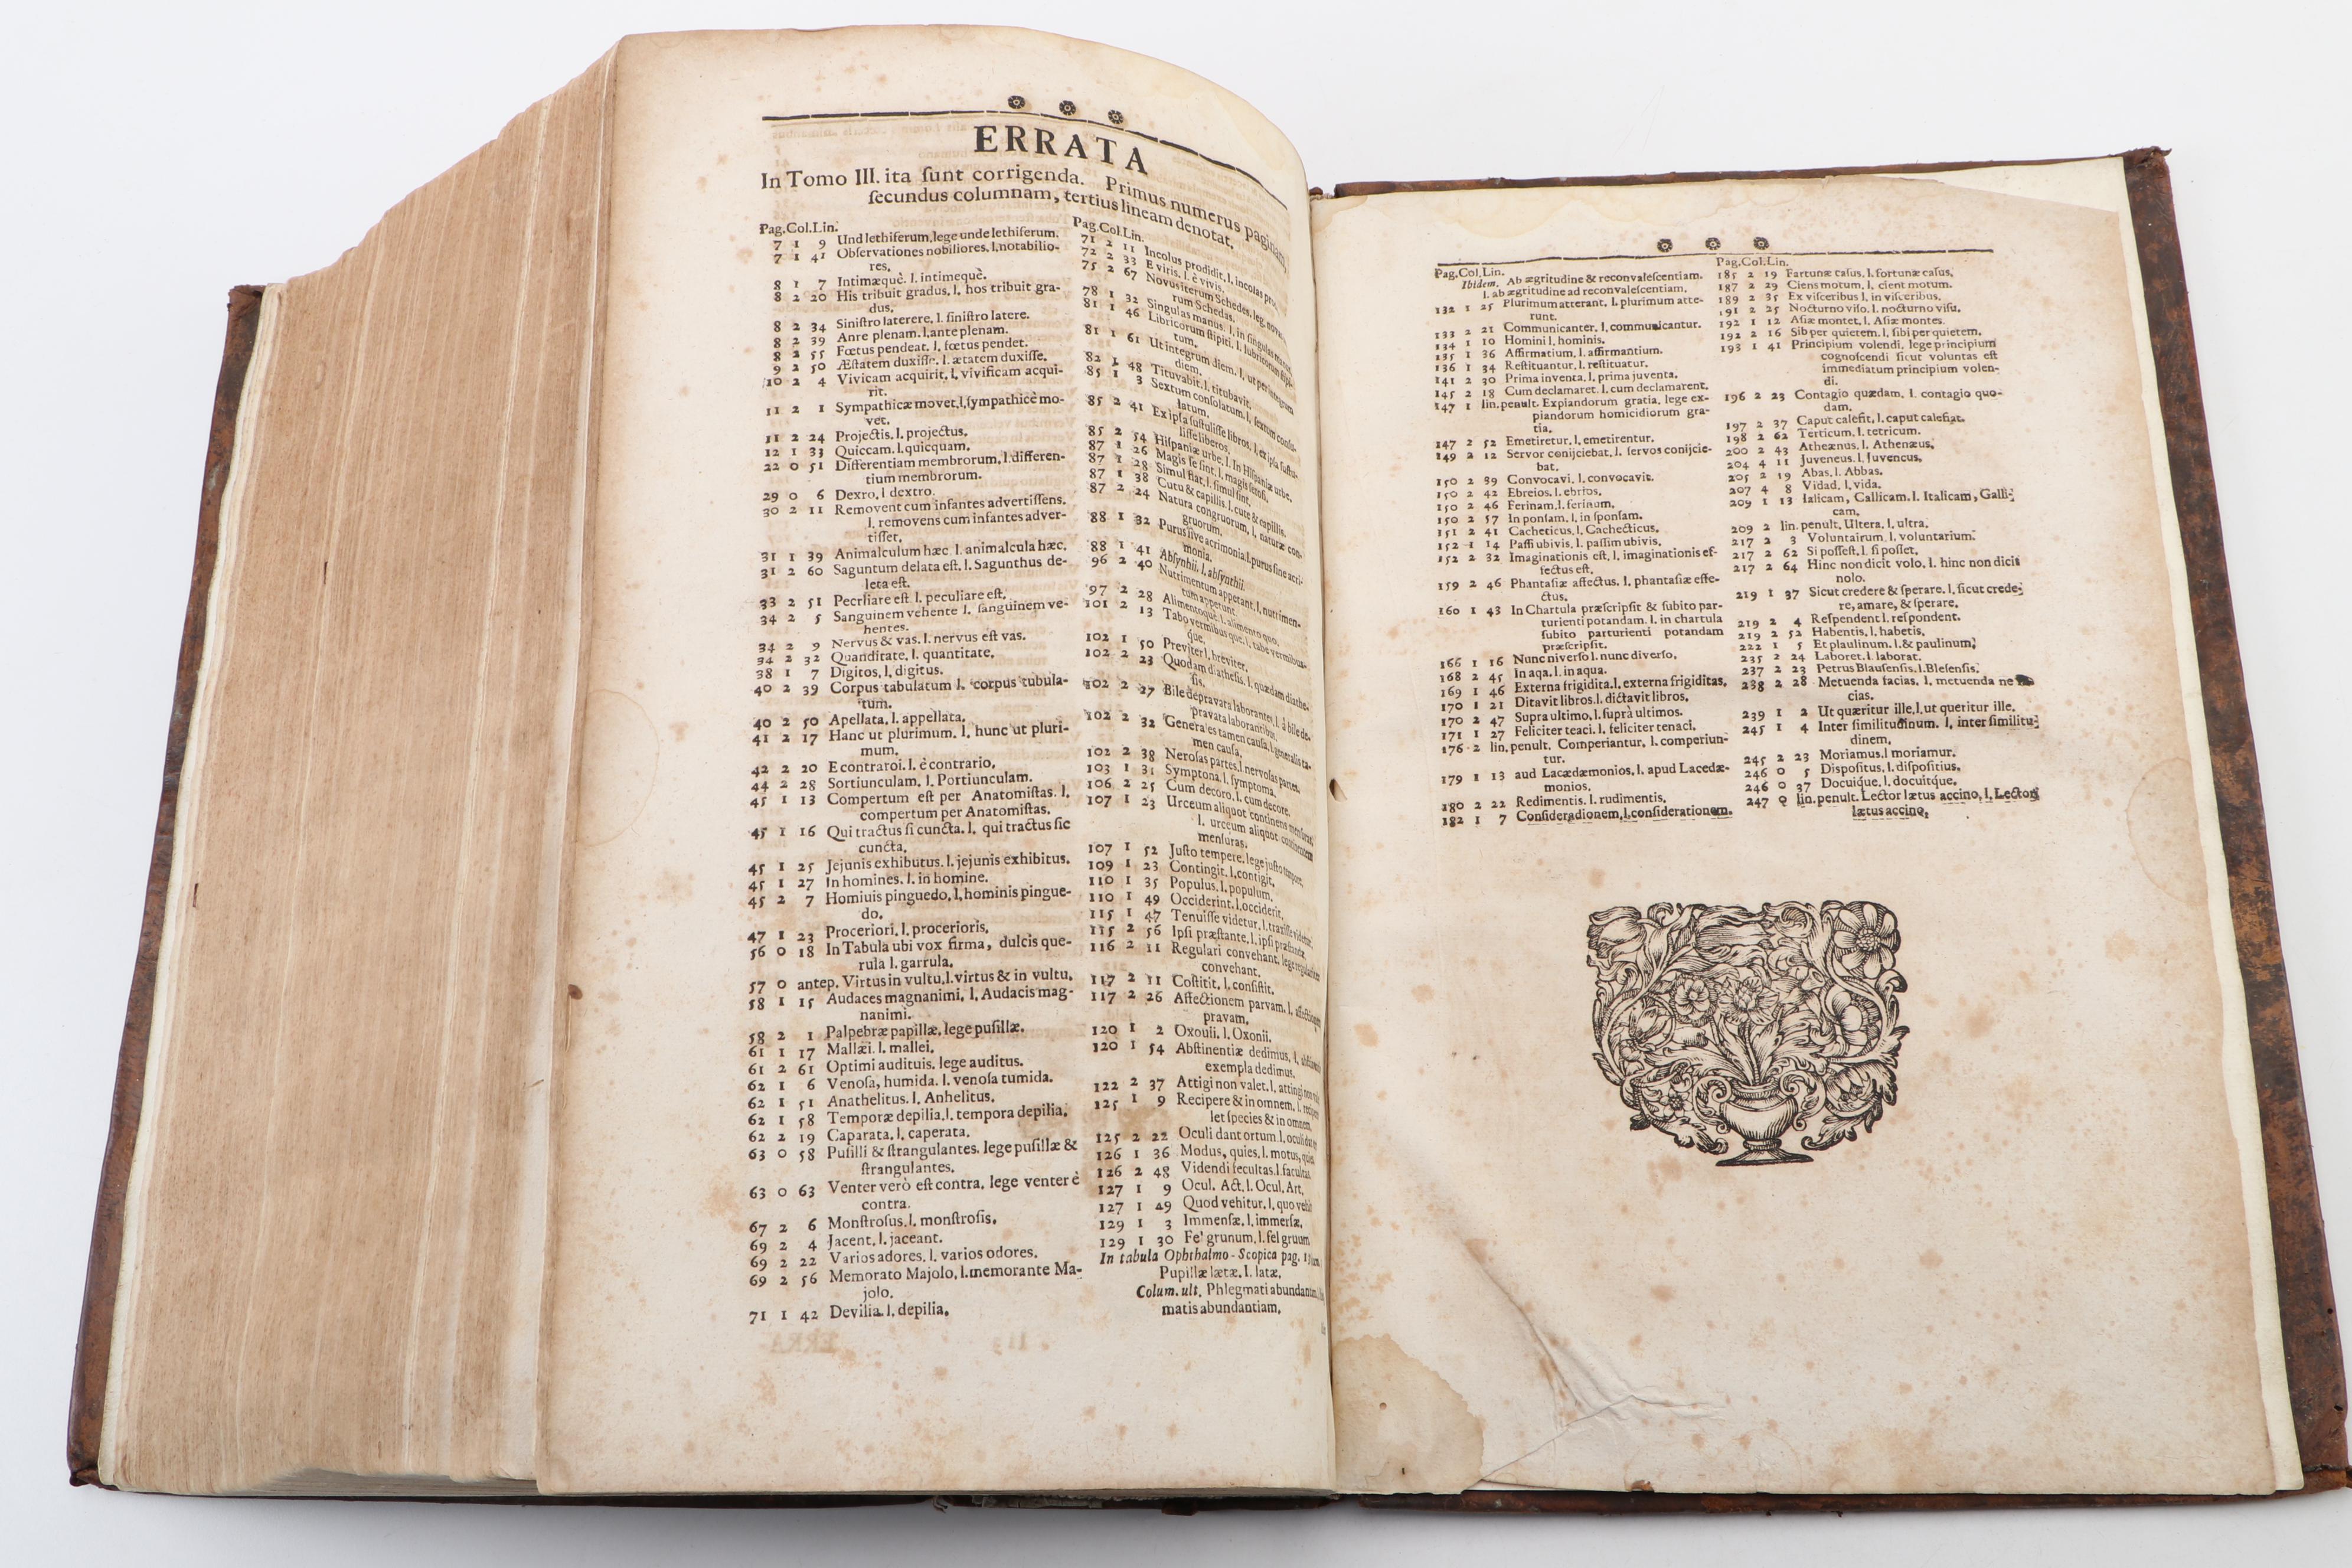 ERRATA
In Tomo III. ita ſunt corrigenda. Primus numerus paginam,
ſecundus columnam, tertius lineam denotat.
Pag. Col. Lin.
7 1 9 Und lethiferum, lege unde lethiferum.
7 1 41 Obſervationes nobiliores. l. notabilio-
res.
8 1 7 Intimæquè. l. intimequè.
8 2 20 His tribuit gradus. l. hos tribuit gra-
dus.
8 2 34 Siniſtro laterere. l. ſiniſtro latere.
8 2 39 Anre plenam. l. ante plenam.
8 2 55 Fœtus pendeat. l. fœtus pendet.
9 2 50 Æſtatem duxiſſe. l. ætatem duxiſſe.
10 2 4 Vivicam acquirit. l. vivificam acqui-
rit.
11 2 1 Sympathicæ movet. l. ſympathicè mo-
vet.
11 2 24 Projectis. l. projectus.
12 1 33 Quiccam. l. quicquam.
22 0 51 Differentiam membrorum, l. differen-
tium membrorum.
29 0 6 Dexro. l dextro.
30 2 11 Removent cum infantes advertiſſens.
l. removens cum infantes adver-
tiſſet.
31 1 39 Animalculum hæc. l. animalcula hæc.
31 2 60 Saguntum delata eſt. l. Sagunthus de-
leta eſt.
33 2 51 Pecrliare eſt. l. peculiare eſt.
34 2 5 Sanguinem vehente l. ſanguinem ve-
hentes.
34 2 9 Nervus & vas. l. nervus eſt vas.
34 2 32 Quanditate. l. quantitate.
38 1 7 Digitos. l. digitus.
40 2 39 Corpus tabulatum l. corpus tubula-
tum.
40 2 50 Apellata. l. appellata.
41 2 17 Hanc ut plurimum. l. hunc ut pluri-
mum.
42 2 20 E contraroi. l. è contrario.
44 2 28 Sortiunculam. l. Portiunculam.
45 1 13 Compertum eſt per Anatomiſtas. l.
compertum per Anatomiſtas.
45 1 16 Qui tractus ſi cuncta. l. qui tractus ſic
cuncta.
45 1 25 Jejunis exhibutus. l. jejunis exhibitus.
45 1 27 In homines. l. in homine.
45 2 7 Homiuis pinguedo. l. hominis pingue-
do.
47 1 23 Proceriori. l. procerioris.
56 0 18 In Tabula ubi vox firma, dulcis que-
rula l. garrula.
57 0 antep. Virtus in vultu. l. virtus & in vultu.
58 1 15 Audaces magnanimi. l. Audacis mag-
nanimi.
58 2 1 Palpebræ papillæ. lege puſillæ.
61 1 17 Mallæi. l. mallei.
61 2 61 Optimi audituis. lege auditus.
62 1 6 Venoſa, humida. l. venoſa tumida.
62 1 51 Anathelitus. l. Anhelitus.
62 1 58 Temporæ depilia. l. tempora depilia.
62 2 19 Caparata. l. caperata.
63 0 58 Puſilli & ſtrangulantes. lege puſillæ &
ſtrangulantes.
63 0 63 Venter verò eſt contra. lege venter è
contra.
67 2 6 Monſtroſus. l. monſtroſis.
69 2 4 Jacent. l. jaceant.
69 2 22 Varios adores. l. varios odores.
69 2 56 Memorato Majolo, l. memorante Ma-
jolo.
71 1 42 Devilia. l. depilia.
Pag. Col. Lin.
71 2 11 Incolus prodidit. l. incolas
72 2 33 E viris. l. è vivis.
75 2 67 Novus iterum Schedes, leg. novas
rum Schedas.
78 1 32 Singulas manus. l. in ſingulas manus.
81 1 46 Libricorum ſtipiti. l. lubricorum
tum.
81 1 61 Ut integrum diem. l. ut per integrum
diem.
82 1 48 Tituvabit. l. titubavit.
85 1 3 Sextum conſolatum. l. ſextum conſu-
latum.
85 2 41 Ex ipſa ſuſtuliſſe libros. l. ex ipſa ſuſtu-
liſſe liberos.
85 2 54 Hiſpaniæ urbe. l. In Hiſpaniæ urbe.
87 1 26 Magis ſe ſint. l. magis ſetoſi.
87 1 28 Simul fiat. l. ſimul ſint.
87 1 38 Cutu & capillis. l. cute & capillis.
87 2 24 Natura congruorum, l. naturæ con-
gruorum.
88 1 32 Purus ſive acrimonia. l. purus ſine acri-
monia.
88 1 41 Abſynhii. l. abſynthii.
96 2 40 Nutrimentum appetant. l. nutrimen-
tum appetunt.
97 2 28 Alimentoquè. l. alimento quo.
101 2 13 Tabo vermibus que. l. tabe vermibus-
que.
102 1 50 Previter l. breviter.
102 2 23 Quodam diatheſis. l. quædam diathe-
ſis.
102 2 27 Bile depravata laborantes, l. à bile de-
pravata laborantibus.
102 2 32 Genera es tamen cauſa. l. generalis ta-
men cauſa.
102 2 38 Neroſas partes. l. nervoſas partes.
103 1 31 Symptona. l. ſymptoma.
106 2 25 Cum decoro. l. cum decore.
107 1 23 Urceum aliquot continens menſuras.
l. urceum aliquot continentem
menſuras.
107 1 52 Juſto tempere. lege juſto tempore.
109 1 23 Contingit. l. contigit.
110 1 35 Populus. l. populum.
110 1 49 Occiderint. l. occiderit.
115 1 47 Tenuiſſe videtur. l. traxiſſe videtur.
115 2 56 Ipſi præſtante. l. ipſi præſtantæ.
116 2 11 Regulari convehant. lege regulariter
convehant.
117 2 11 Coſtitit. l. conſiſtit.
117 2 26 Affectionem parvam. l. affectionem
pravam.
120 1 2 Oxouii. l. Oxonii.
120 1 54 Abſtinentiæ dedimus, l.
exempla dedimus.
122 2 37 Attigi non valet. l. attingi non
125 1 9 Recipere & in omnem. l.
let ſpecies & in omnem.
125 2 22 Oculi dant ortum. l. oculi dat
126 1 36 Modus, quies. l. motus, quies.
126 2 48 Videndi fecultas. l. facultas.
127 1 9 Ocul. Act. l. Ocul. Art.
127 1 49 Quod vehitur. l. quo
129 1 3 Immenſæ. l. immerſæ.
129 1 30 Fe' grunum. l. fel gruum
In tabula Ophthalmo-Scopica pag.
Pupillæ lætæ. l. latæ.
Colum. ult. Phlegmati abundantiam
matis abundantiam.
Pag. Col. Lin.
Ibidem. Ab ægritudine & reconvaleſcentiam.
l. ab ægritudine ad reconvaleſcentiam.
132 1 25 Plurimum atterant. l. plurimum atte-
runt.
133 2 21 Communicanter. l. communicantur.
134 1 10 Homini l. hominis.
135 1 36 Affirmatium. l. affirmantium.
136 1 34 Reſtituantur. l. reſtituatur.
141 2 30 Prima inventa. l. prima juventa.
145 2 18 Cum declamaret. l. cum declamarent.
147 1 lin. penult. Expiandorum gratia. lege ex-
piandorum homicidiorum gra-
tia.
147 2 52 Emetiretur. l. emetirentur.
149 2 12 Servor conijciebat. l. ſervos conijcie-
bat.
150 2 39 Convocavi. l. convocavit.
150 2 42 Ebreios. l. ebrios.
150 2 46 Ferinam. l. ferinum.
150 2 57 In ponſam. l. in ſponſam.
151 2 41 Cacheticus. l. Cachecticus.
152 1 14 Paſſi ubivis. l. paſſim ubivis.
152 2 32 Imaginationis eſt. l. imaginationis ef-
fectus eſt.
159 2 46 Phantaſiæ affectus. l. phantaſiæ effe-
ctus.
160 1 43 In Chartula præſcripſit & ſubito par-
turienti potandam. l. in chartula
ſubito parturienti potandam
præſcripſit.
166 1 16 Nunc niverſo l. nunc diverſo.
168 2 45 In aqa. l. in aqua.
169 1 46 Externa frigidita. l. externa frigiditas.
170 1 21 Ditavit libros. l. dictavit libros.
170 2 47 Supra ultimo. l. ſuprà ultimos.
171 1 27 Feliciter teaci. l. feliciter tenaci.
176 2 lin. penult. Comperiantur. l. comperiun-
tur.
179 1 13 aud Lacædæmonios. l. apud Lacedæ-
monios.
180 2 22 Redimentis. l. rudimentis.
182 1 7 Conſideradionem, l. conſiderationem.
Pag. Col. Lin.
185 2 19 Fartunæ caſus. l. fortunæ caſus.
187 2 29 Ciens motum. l. cient motum.
189 2 35 Ex viſceribus l. in viſceribus.
191 2 25 Nocturno viſo. l. nocturno viſu.
192 1 12 Aſiæ montet. l. Aſiæ montes.
192 2 16 Sib per quietem. l. ſibi per quietem.
193 1 41 Principium volendi, lege principium
cognoſcendi ſicut voluntas eſt
immediatum principium volen-
di.
196 2 23 Contagio quædam. l. contagio quo-
dam.
197 2 37 Caput calefit. l. caput calefiat.
198 2 62 Terticum. l. tetricum.
200 2 43 Atheænus. l. Athenæus.
204 4 11 Juveneus. l. Juvencus.
205 2 19 Abas. l. Abbas.
207 4 8 Vidad. l. vida.
209 1 13 Ialicam, Callicam. l. Italicam, Galli-
cam.
209 2 lin. penult. Ultera. l. ultra.
217 2 3 Voluntairum. l. voluntarium.
217 2 62 Si poſſeſt. l. ſi poſſet.
217 2 64 Hinc non dicit volo. l. hinc non dicit
nolo.
219 1 37 Sicut credere & ſperare. l. ſicut crede-
re, amare, & ſperare.
219 2 4 Reſpendent l. reſpondent.
219 2 52 Habentis. l. habetis.
222 1 5 Et plaulinum. l. & paulinum.
235 2 24 Laboret. l. laborat.
237 2 23 Petrus Blauſenſis. l. Bleſenſis.
238 2 28 Metuenda facias. l. metuenda ne
cias.
239 1 2 Ut quæritur ille. l. ut queritur ille.
245 1 4 Inter ſimilitudinum. l. inter ſimilitu-
dinem.
245 2 23 Moriamus. l moriamur.
246 0 5 Dispoſitus. l. diſpoſitius.
246 0 37 Docuiq́ue. l. docuitque.
247 0 lin. penult. Lector lætus accino. l. Lectori
lætus accino.